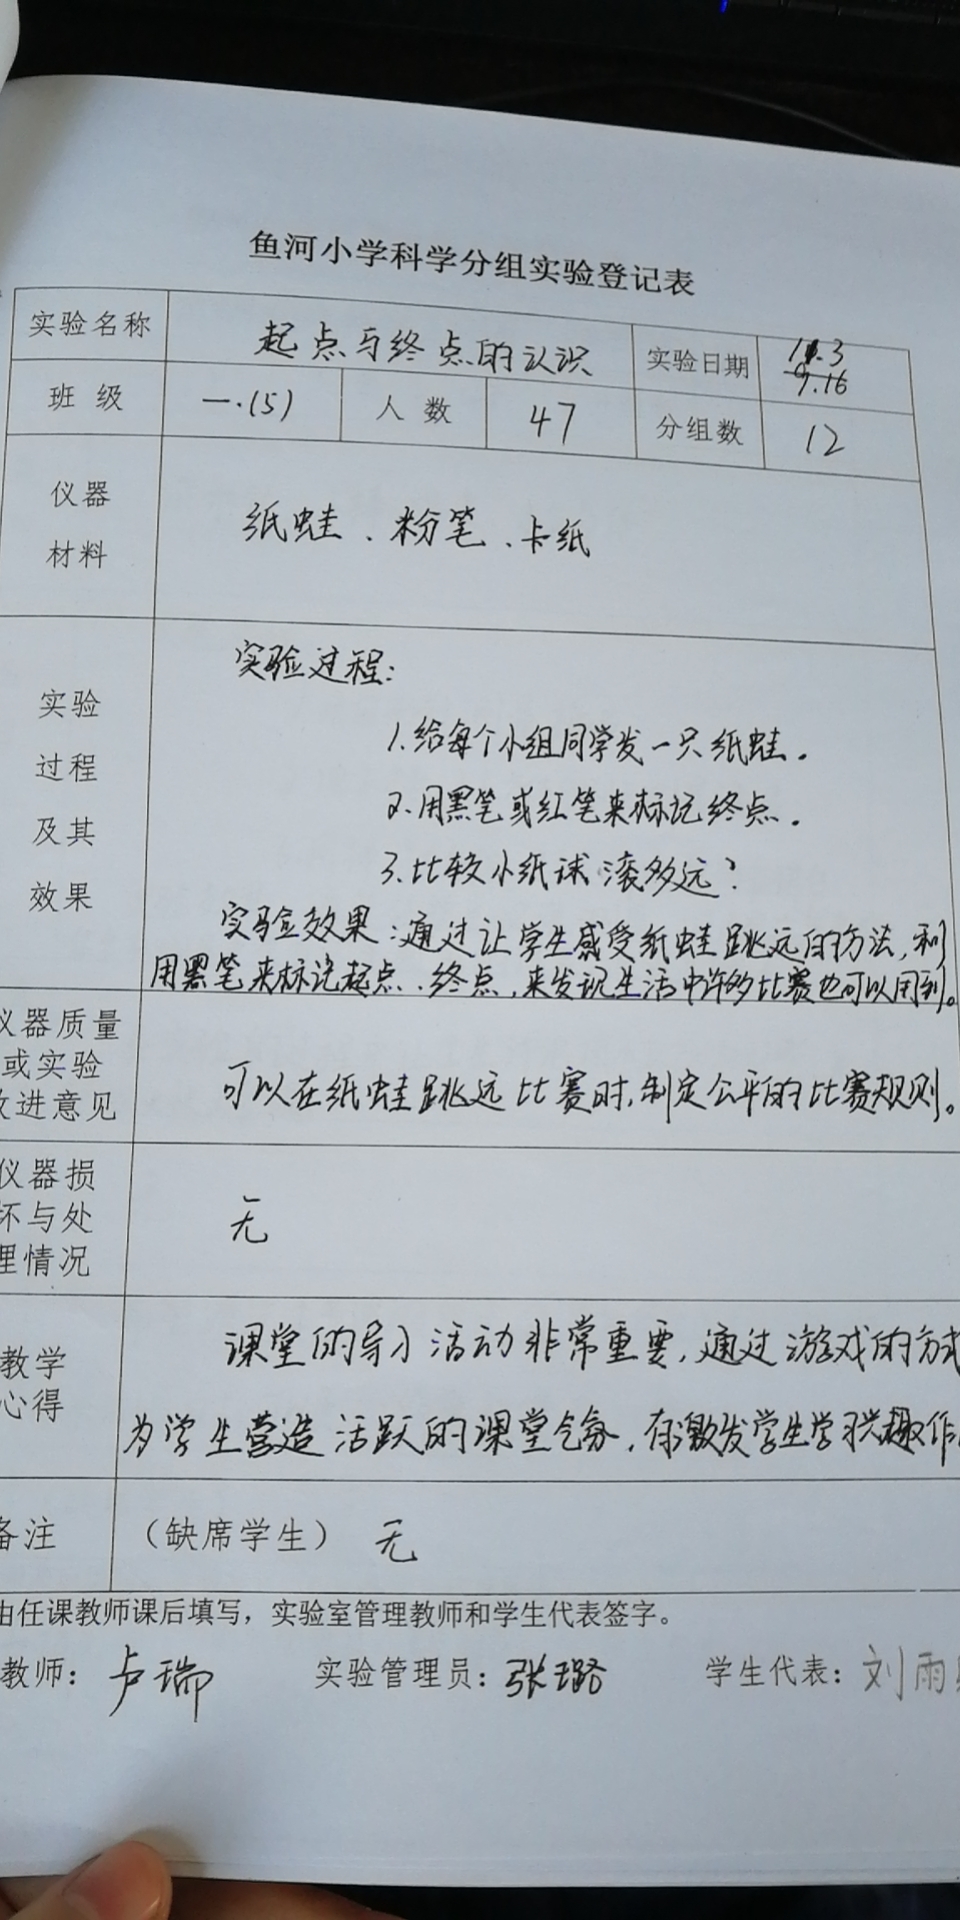 鱼河小学科学分组实验登记表
实验名称 起点与终点的认识 实验日期 11.3
9.16
班 级 一.(5) 人 数 47 分组数 12
仪器
材料
纸蛙、粉笔、卡纸
实验
过程
及其
效果
实验过程:
1.给每个小组同学发一只纸蛙。
2.用黑笔或红笔来标记终点。
3.比较小纸球滚多远?
实验效果:通过让学生感受纸蛙跳远的方法,利
用黑笔来标记起点、终点,来发现生活中许多比赛也可以用到。
仪器质量
或实验
改进意见
可以在纸蛙跳远比赛时,制定公平的比赛规则。
仪器损
坏与处
理情况
无
教学
心得
课堂的导入活动非常重要,通过游戏的方式
为学生营造活跃的课堂气氛,有激发学生学习兴趣作
备注 (缺席学生) 无
由任课教师课后填写,实验室管理教师和学生代表签字。
教师: 卢瑞 实验管理员: 张璐 学生代表: 刘雨